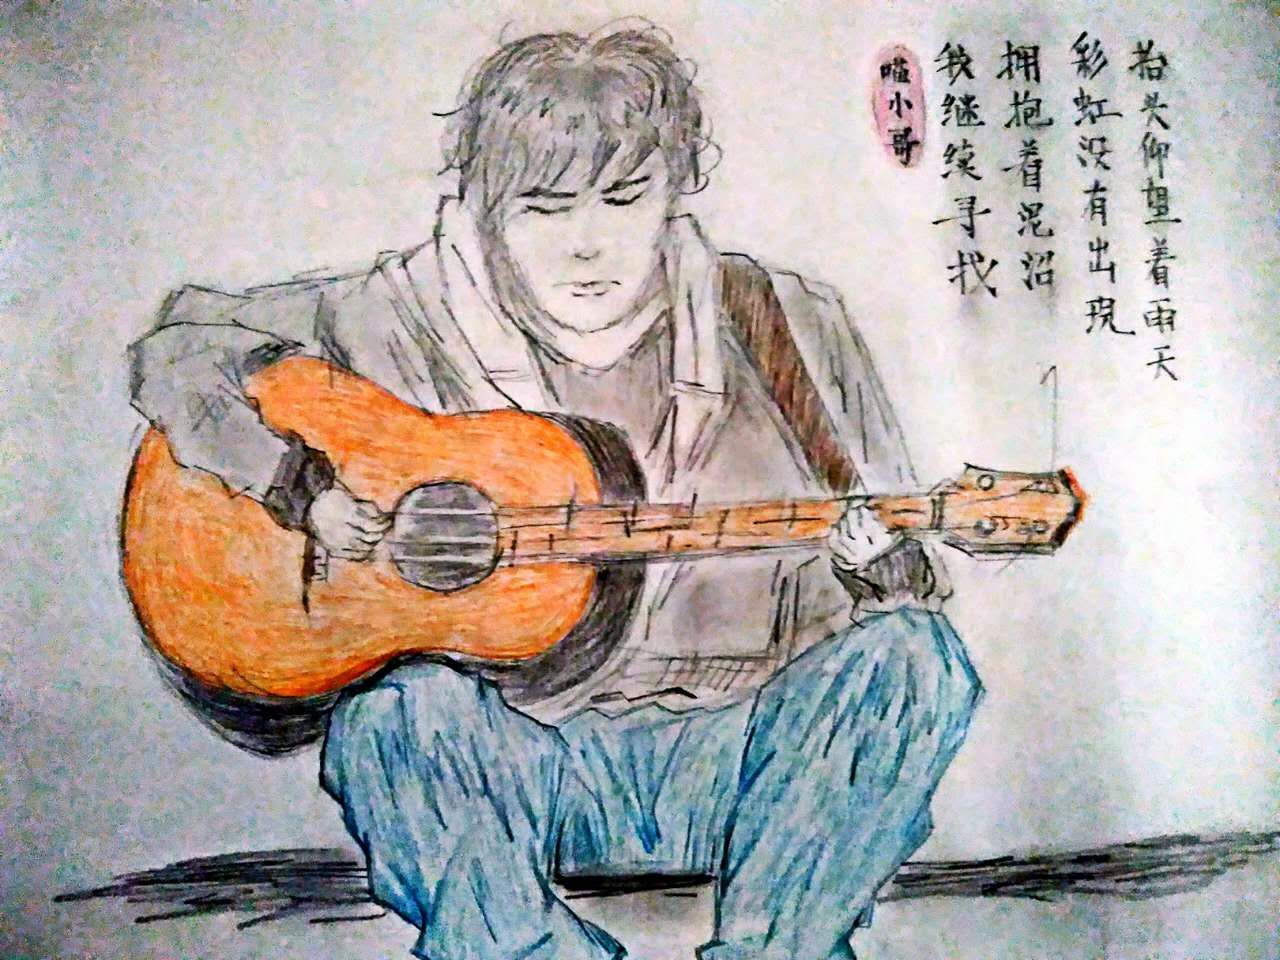 抬头仰望着雨天
彩虹没有出现
拥抱着泥沼
我继续寻找
喵小哥